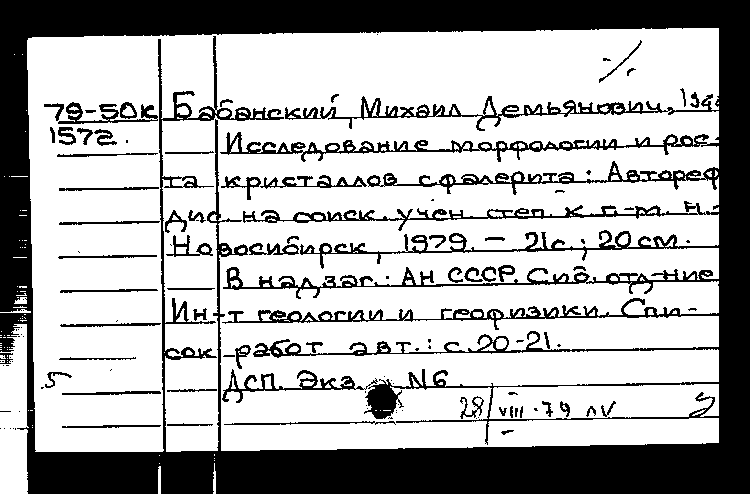 79-50к Бабанский, Михаил Демьянович,
1572. Исследование морфологии и рос-
та кристаллов сфалерита: Автореф
дис. на соиск. учен. степ. к. г.-м. н.-
Новосибирск, 1979. - 21с.; 20 см.
В надзаг.: АН СССР. Сиб. отд-ние
Ин-т геологии и геофизики. Спи-
сок работ авт.: с. 20-21.
5 ДСП. Экз. N6.
28/VIII-79